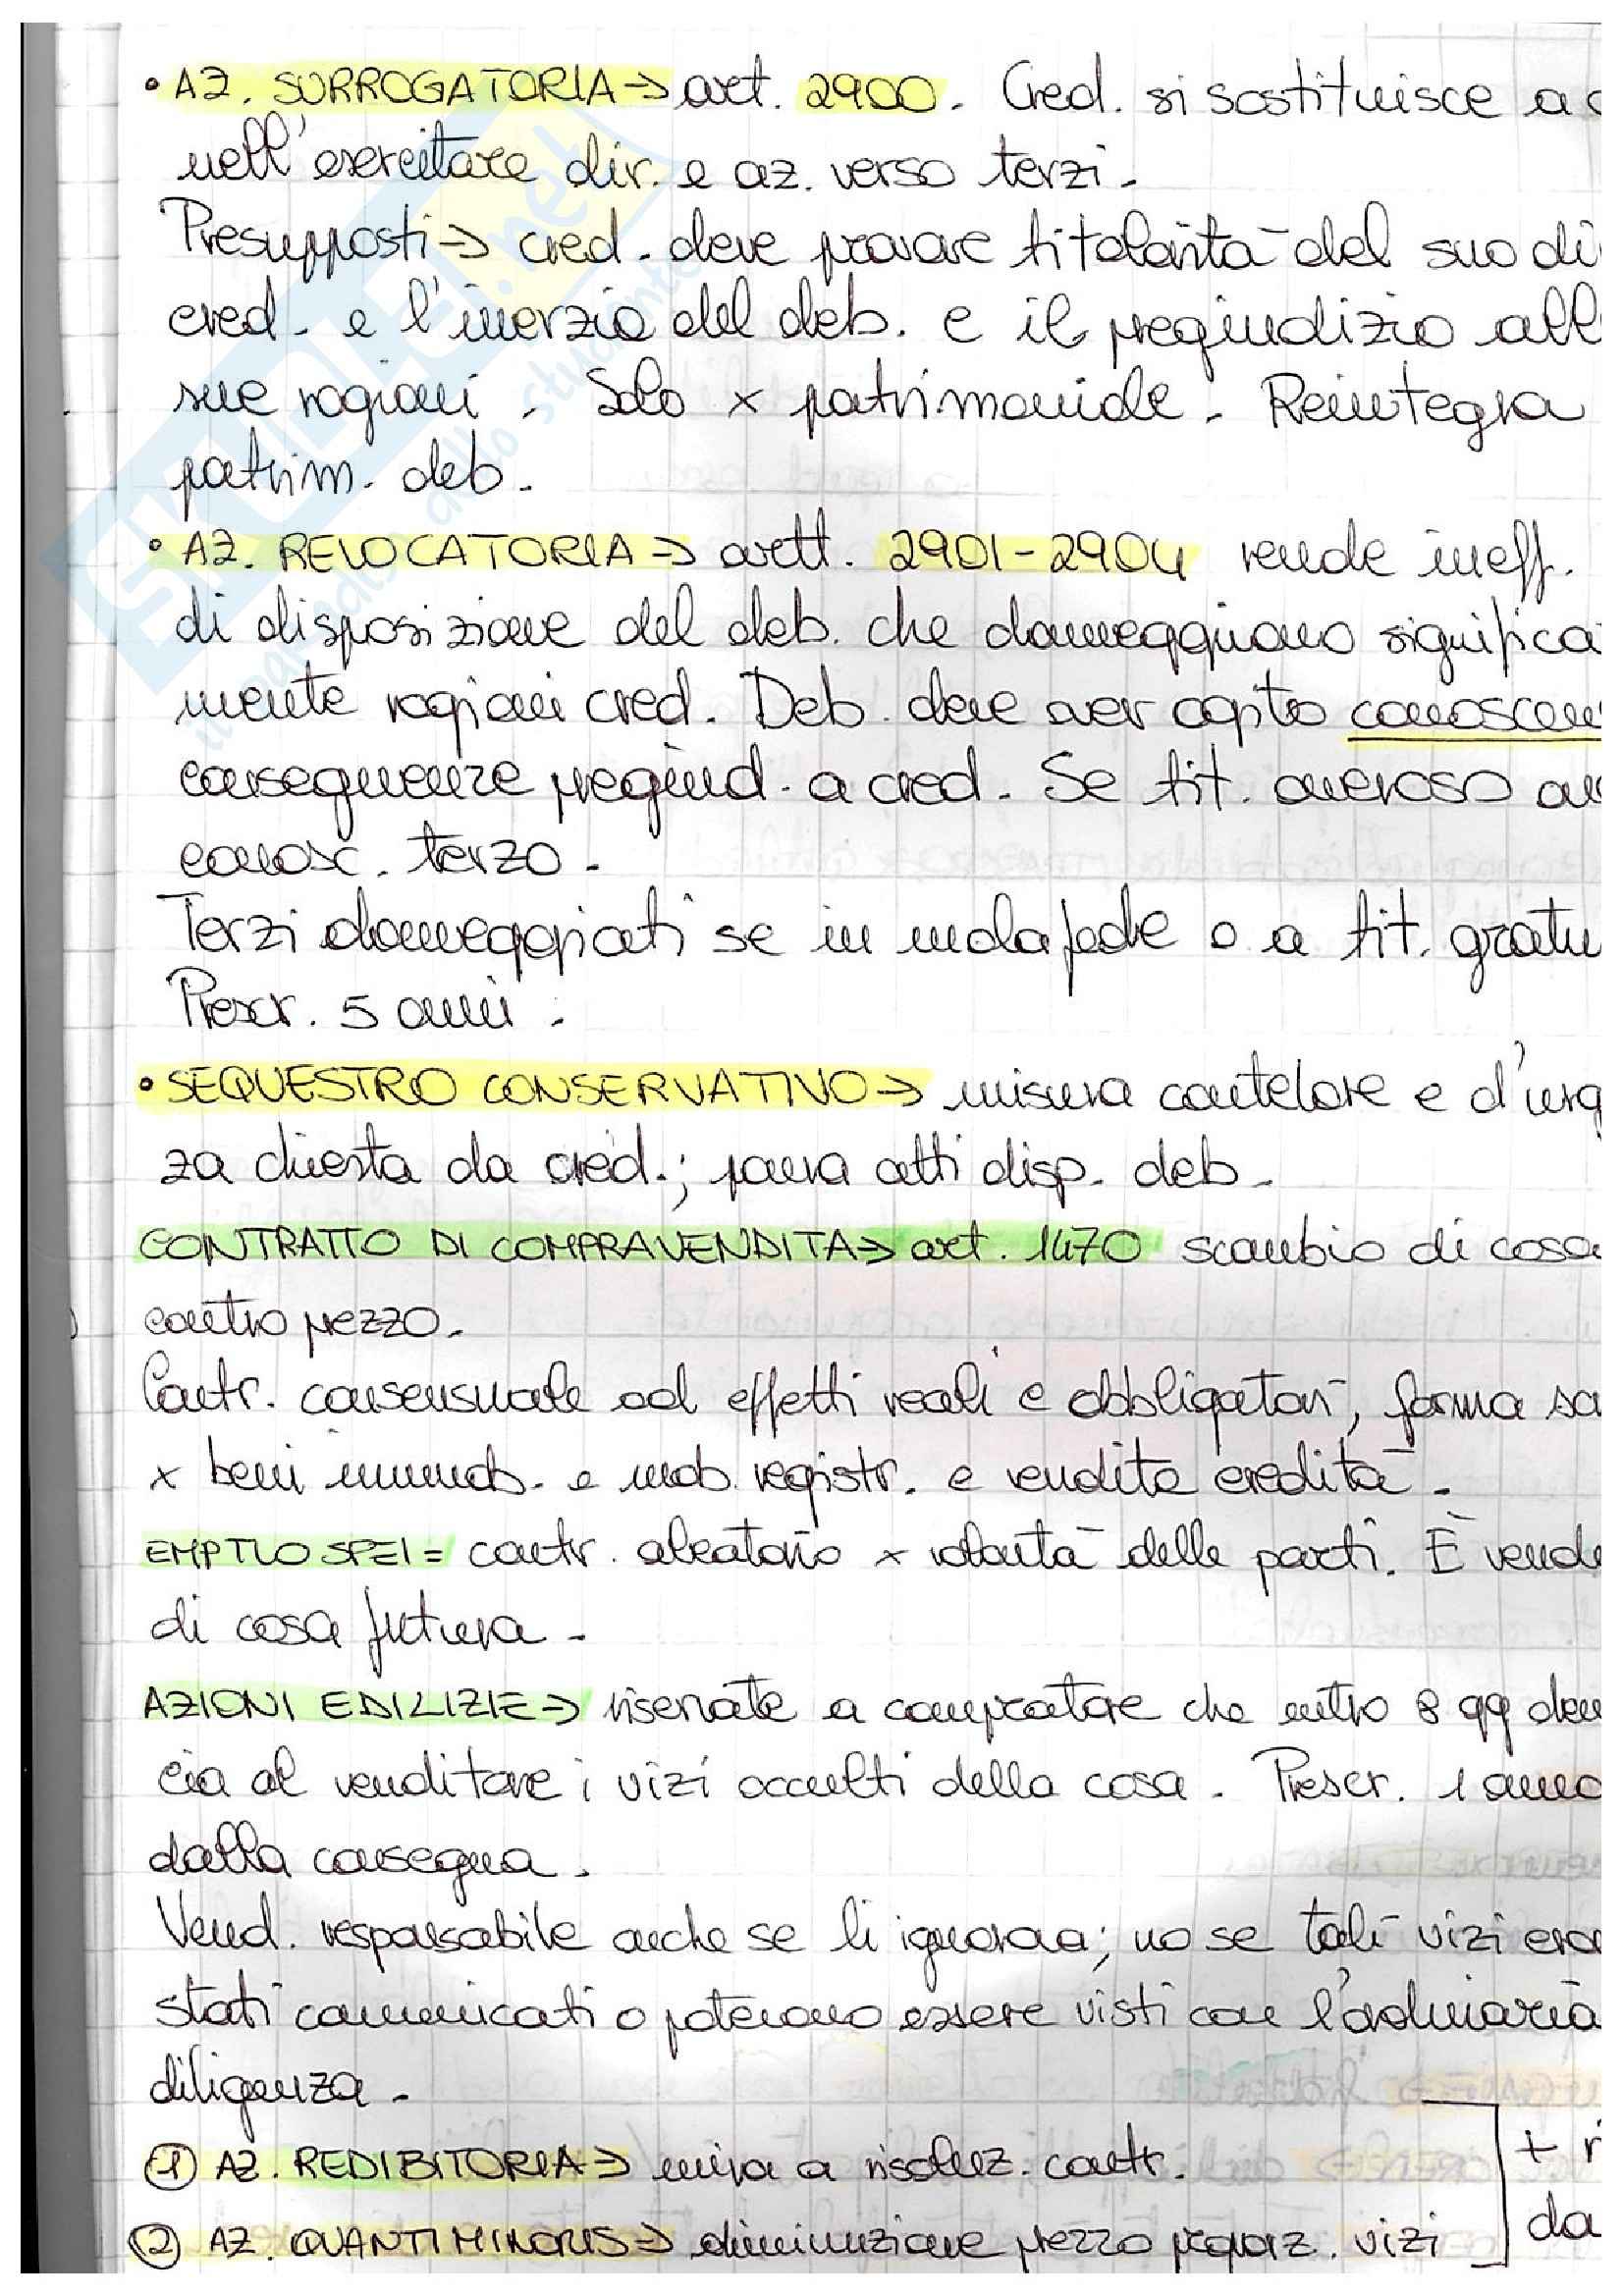 • AZ. SURROGATORIA → art. 2900. Cred. si sostituisce a
nell'esercitare dir. e az. verso terzi.
Presupposti → cred. deve provare titolarità del suo di
cred. e l'inerzia del deb. e il pregiudizio all
sue ragioni. Solo x patrimoniale. Reintegra
patrim. deb.
• AZ. REVOCATORIA → artt. 2901-2904 rende ineff.
di disposizione del deb. che danneggiano significa
mente ragioni cred. Deb. deve aver capito conoscen
conseguenze pregiud. a cred. Se tit. oneroso an
conosc. terzo.
Terzi danneggiati se in mala fede o a tit. gratu
Prescr. 5 anni.
• SEQUESTRO CONSERVATIVO → misura cautelare e d'urg
za chiesta da cred.; paura atti disp. deb.
CONTRATTO DI COMPRAVENDITA → art. 1470 scambio di cosa
contro prezzo.
Contr. consensuale ad effetti reali e obbligatori, forma sc
x beni immob. e mob. registr. e vendita eredità.
EMPTIO SPEI = contr. aleatorio x volontà delle parti. È vend
di cosa futura.
AZIONI EDILIZIE → riservate a compratore che entro 8 gg den
cia al venditore i vizi occulti della cosa. Prescr. 1 anno
dalla consegna.
Vend. responsabile anche se li ignorava; no se tali vizi era
stati comunicati o potevano essere visti con l'ordinaria
diligenza.
① AZ. REDIBITORIA → mira a risoluz. contr.
+ r
② AZ. QUANTI MINORIS → diminuzione prezzo proporz. vizi
da
SKUOLA.net